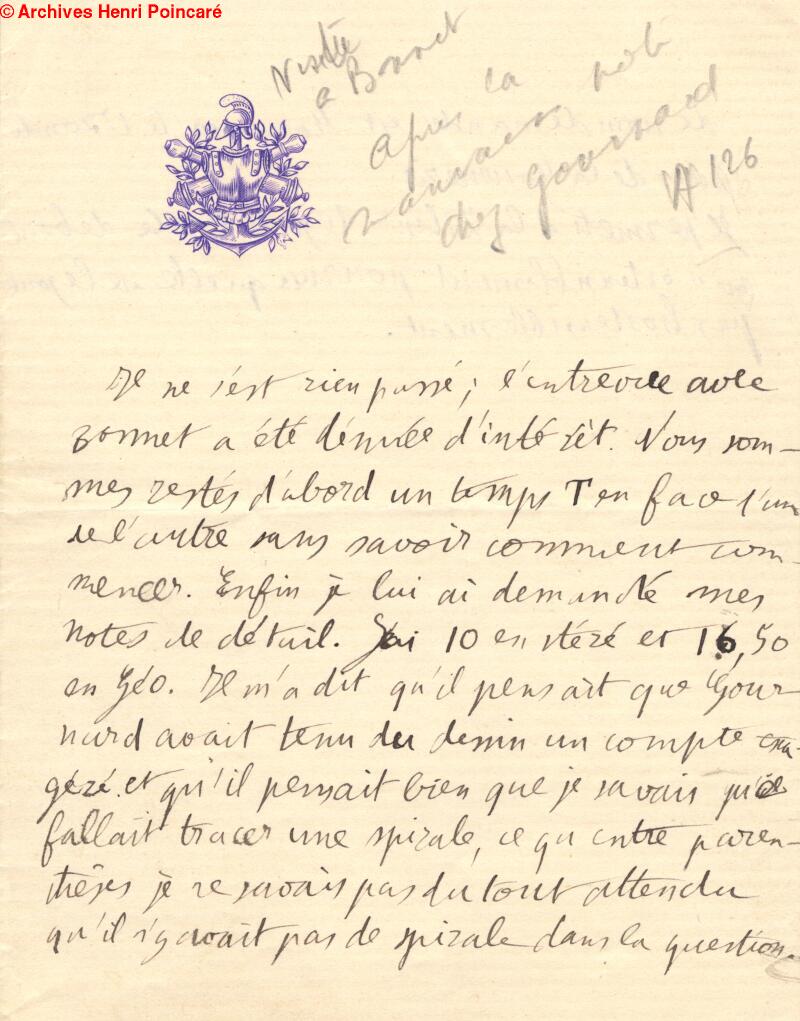 © Archives Henri Poincaré
Visite
a Bonnet
après la note
mauvaise
chez Gournard
A 126
Il ne s'est rien passé ; l'entrevue avec
Bonnet a été dénuée d'intérêt. Nous som-
mes restés d'abord un temps T en face l'un
de l'autre sans savoir comment com-
mencer. Enfin je lui ai demandé mes
notes de détail. J'ai 10 en stéré et 16,50
en Géo. Il m'a dit qu'il pensait que Gour
nard avait tenu du dessin un compte exa-
géré et qu'il pensait bien que je savais qu'il
fallait tracer une spirale, ce qu'entre paren-
thèses je ne savais pas du tout attendu
qu'il n'y avait pas de spirale dans la question.